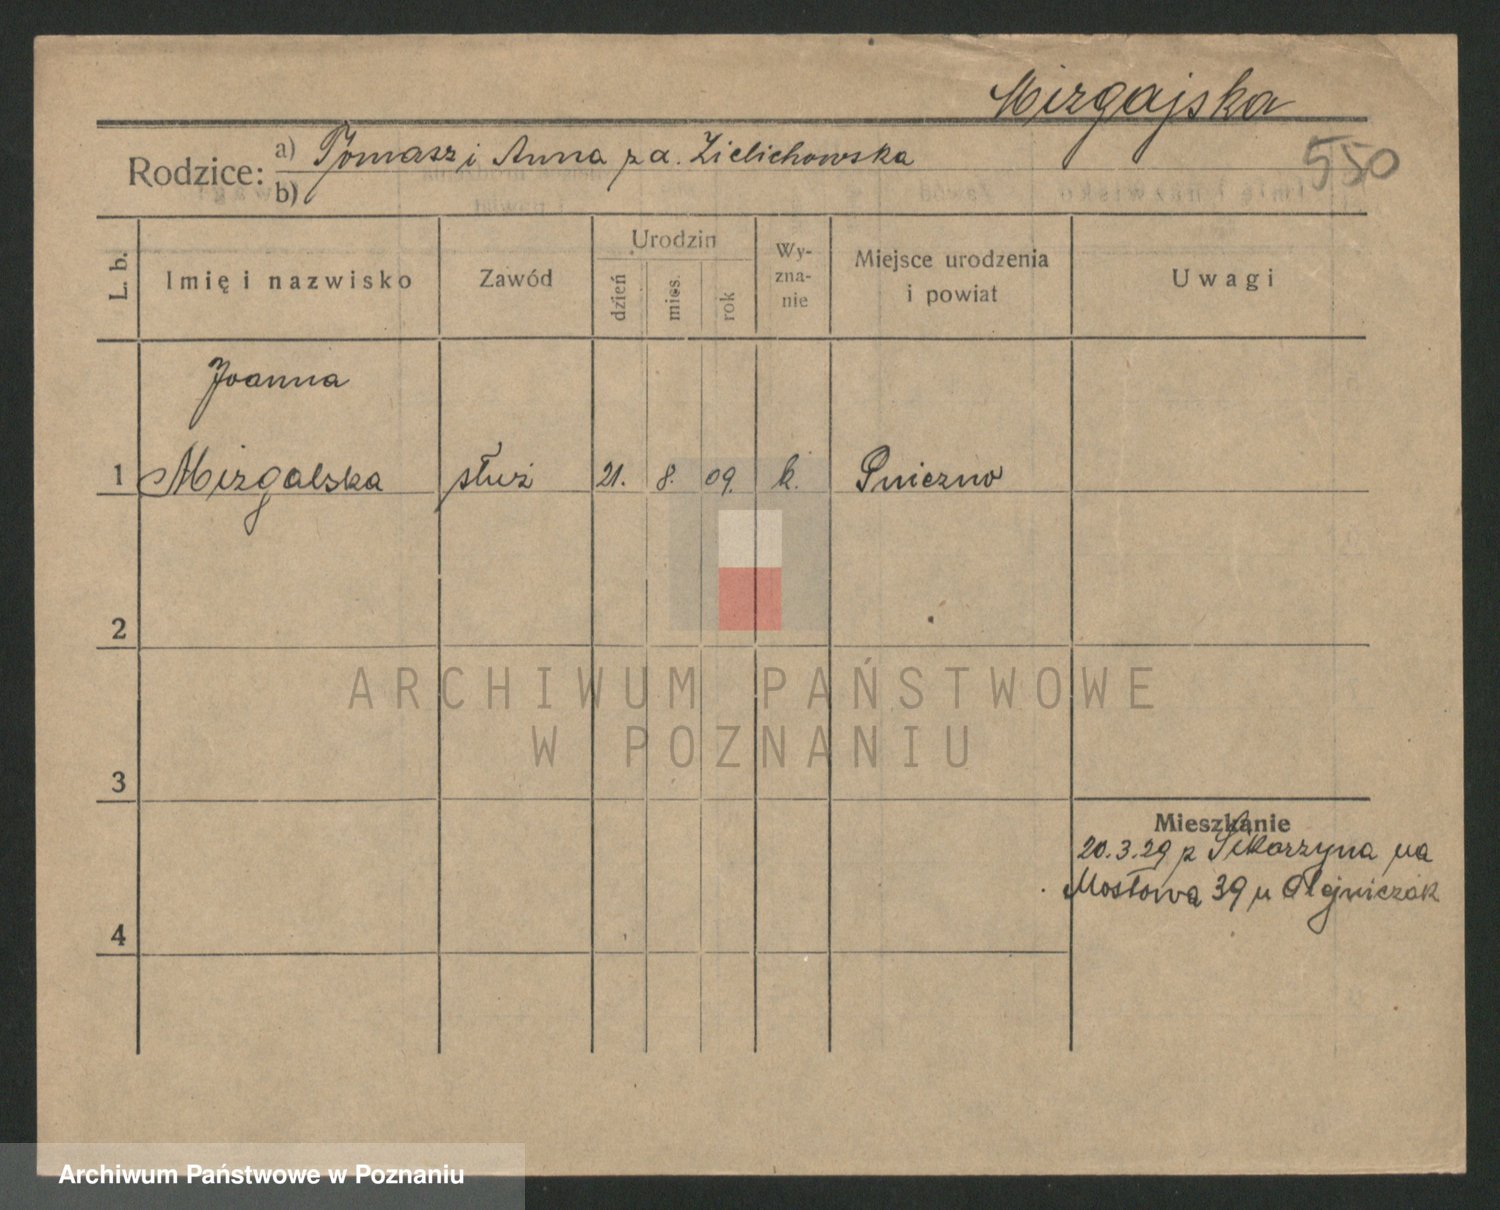 Mizgajska
550
Rodzice: a) Tomasz i Anna z d. Zielichowska
b)
L. b.
Imię i nazwisko
Zawód
Urodzin
dzień
mies.
rok
Wy-
zna-
nie
Miejsce urodzenia
i powiat
Uwagi
Joanna
1 Mizgalska służ 21. 8. 09. k. Gniezno
2
ARCHIWUM PAŃSTWOWE
W POZNANIU
3
Mieszkanie
20.3.29 z Sikorzyna na
Mostowa 39 u Olejniczak
4
Archiwum Państwowe w Poznaniu